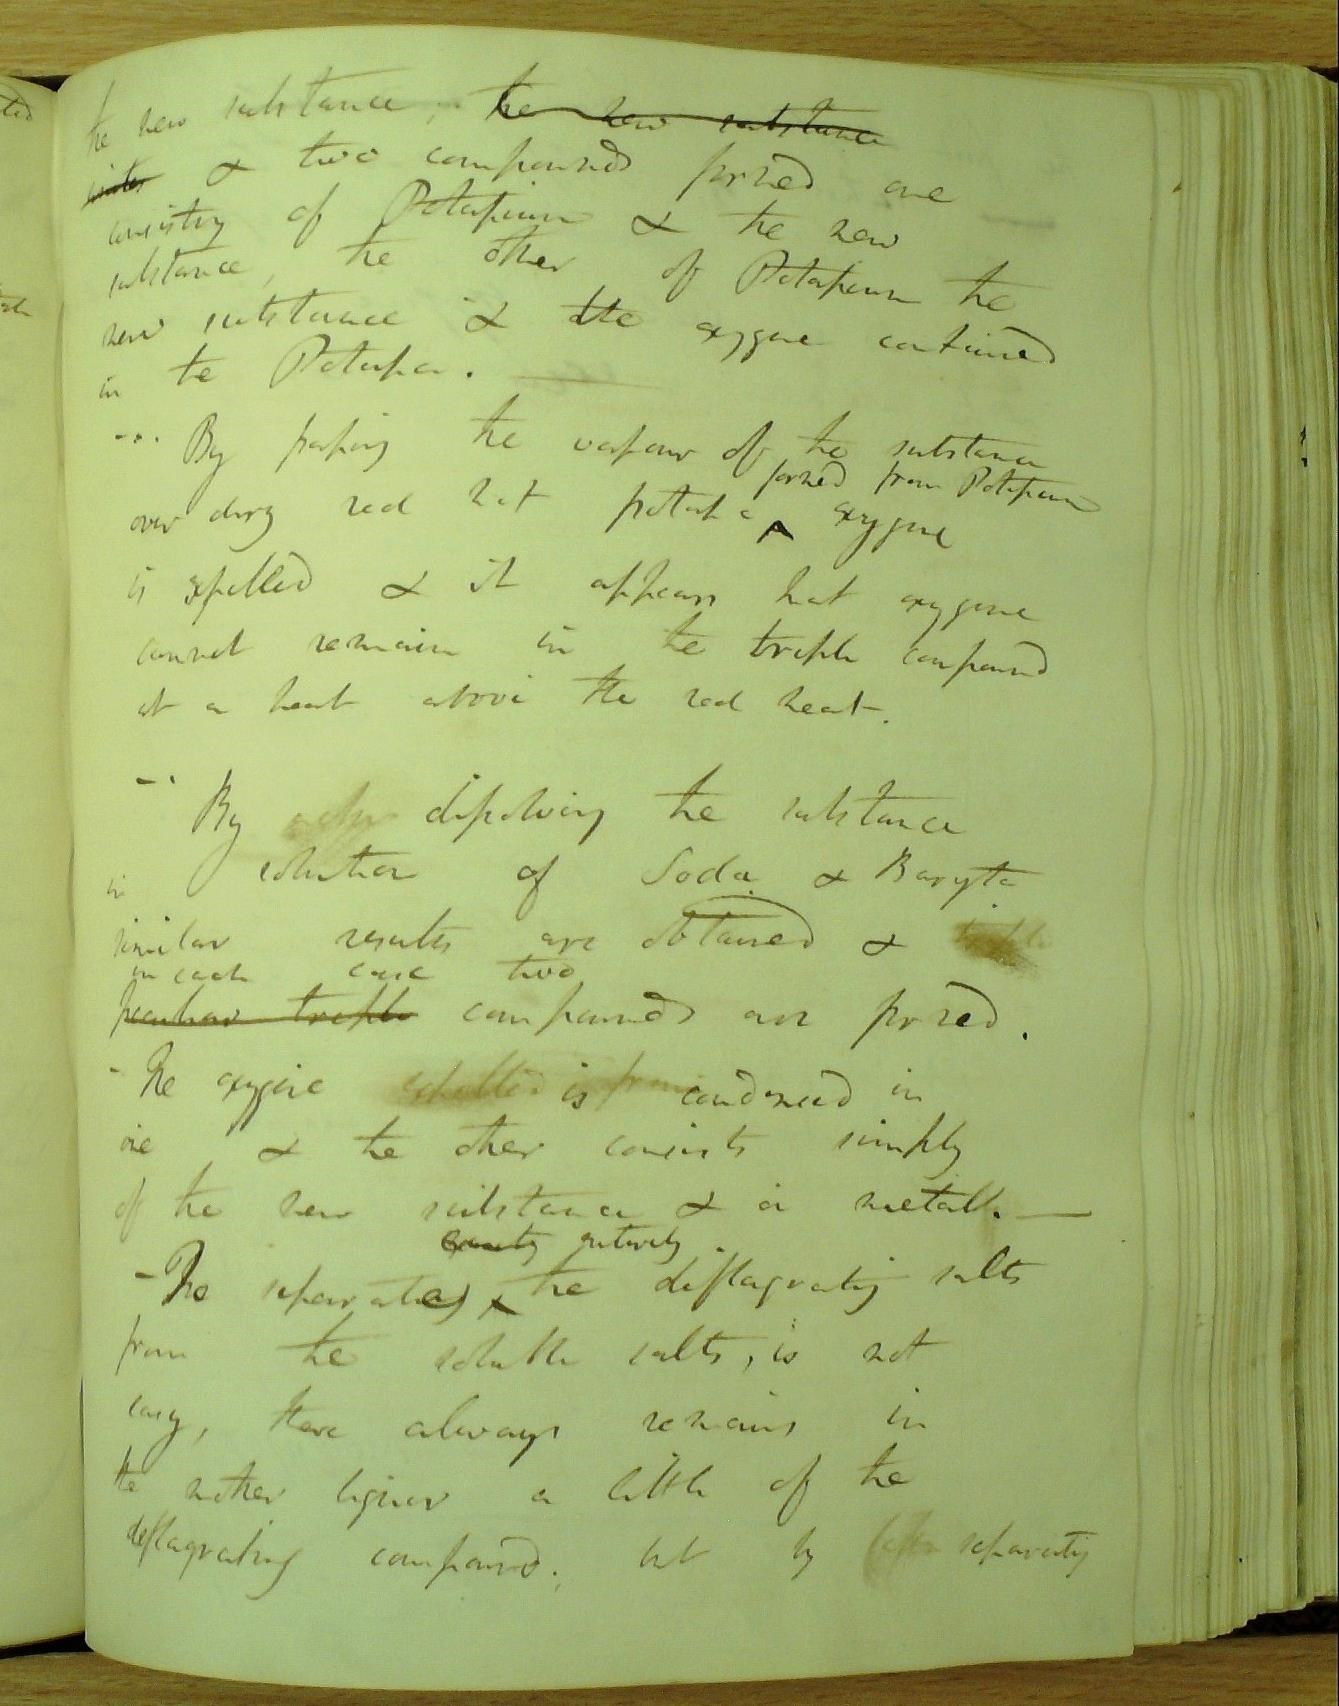 the new substance, the new substance
unites & two compounds formed one
consistg of Potassium & the new
substance, the other of Potassium the
new substance & the oxygene contained
in the Potassa. —
-.. By passing the vapour of the substance
formed from Potassium
over dry red hot potassa ^ oxygene
is expelled & it appears that oxygene
cannot remain in the triple compound
at a heat above the red heat.
-. By dissolving the substance
in solution of Soda & Baryta
similar results are obtained & triple
in each case two
peculiar triple compounds are formed.
- The oxygene expelled is from condensed in
one & the other consists simply
of the new substance & a metall. —
entirely
- The separating ^ the deflagrating salts
from the soluble salts, is not
easy, there always remains in
the mother liquor a little of the
deflagrating compound; but by separating